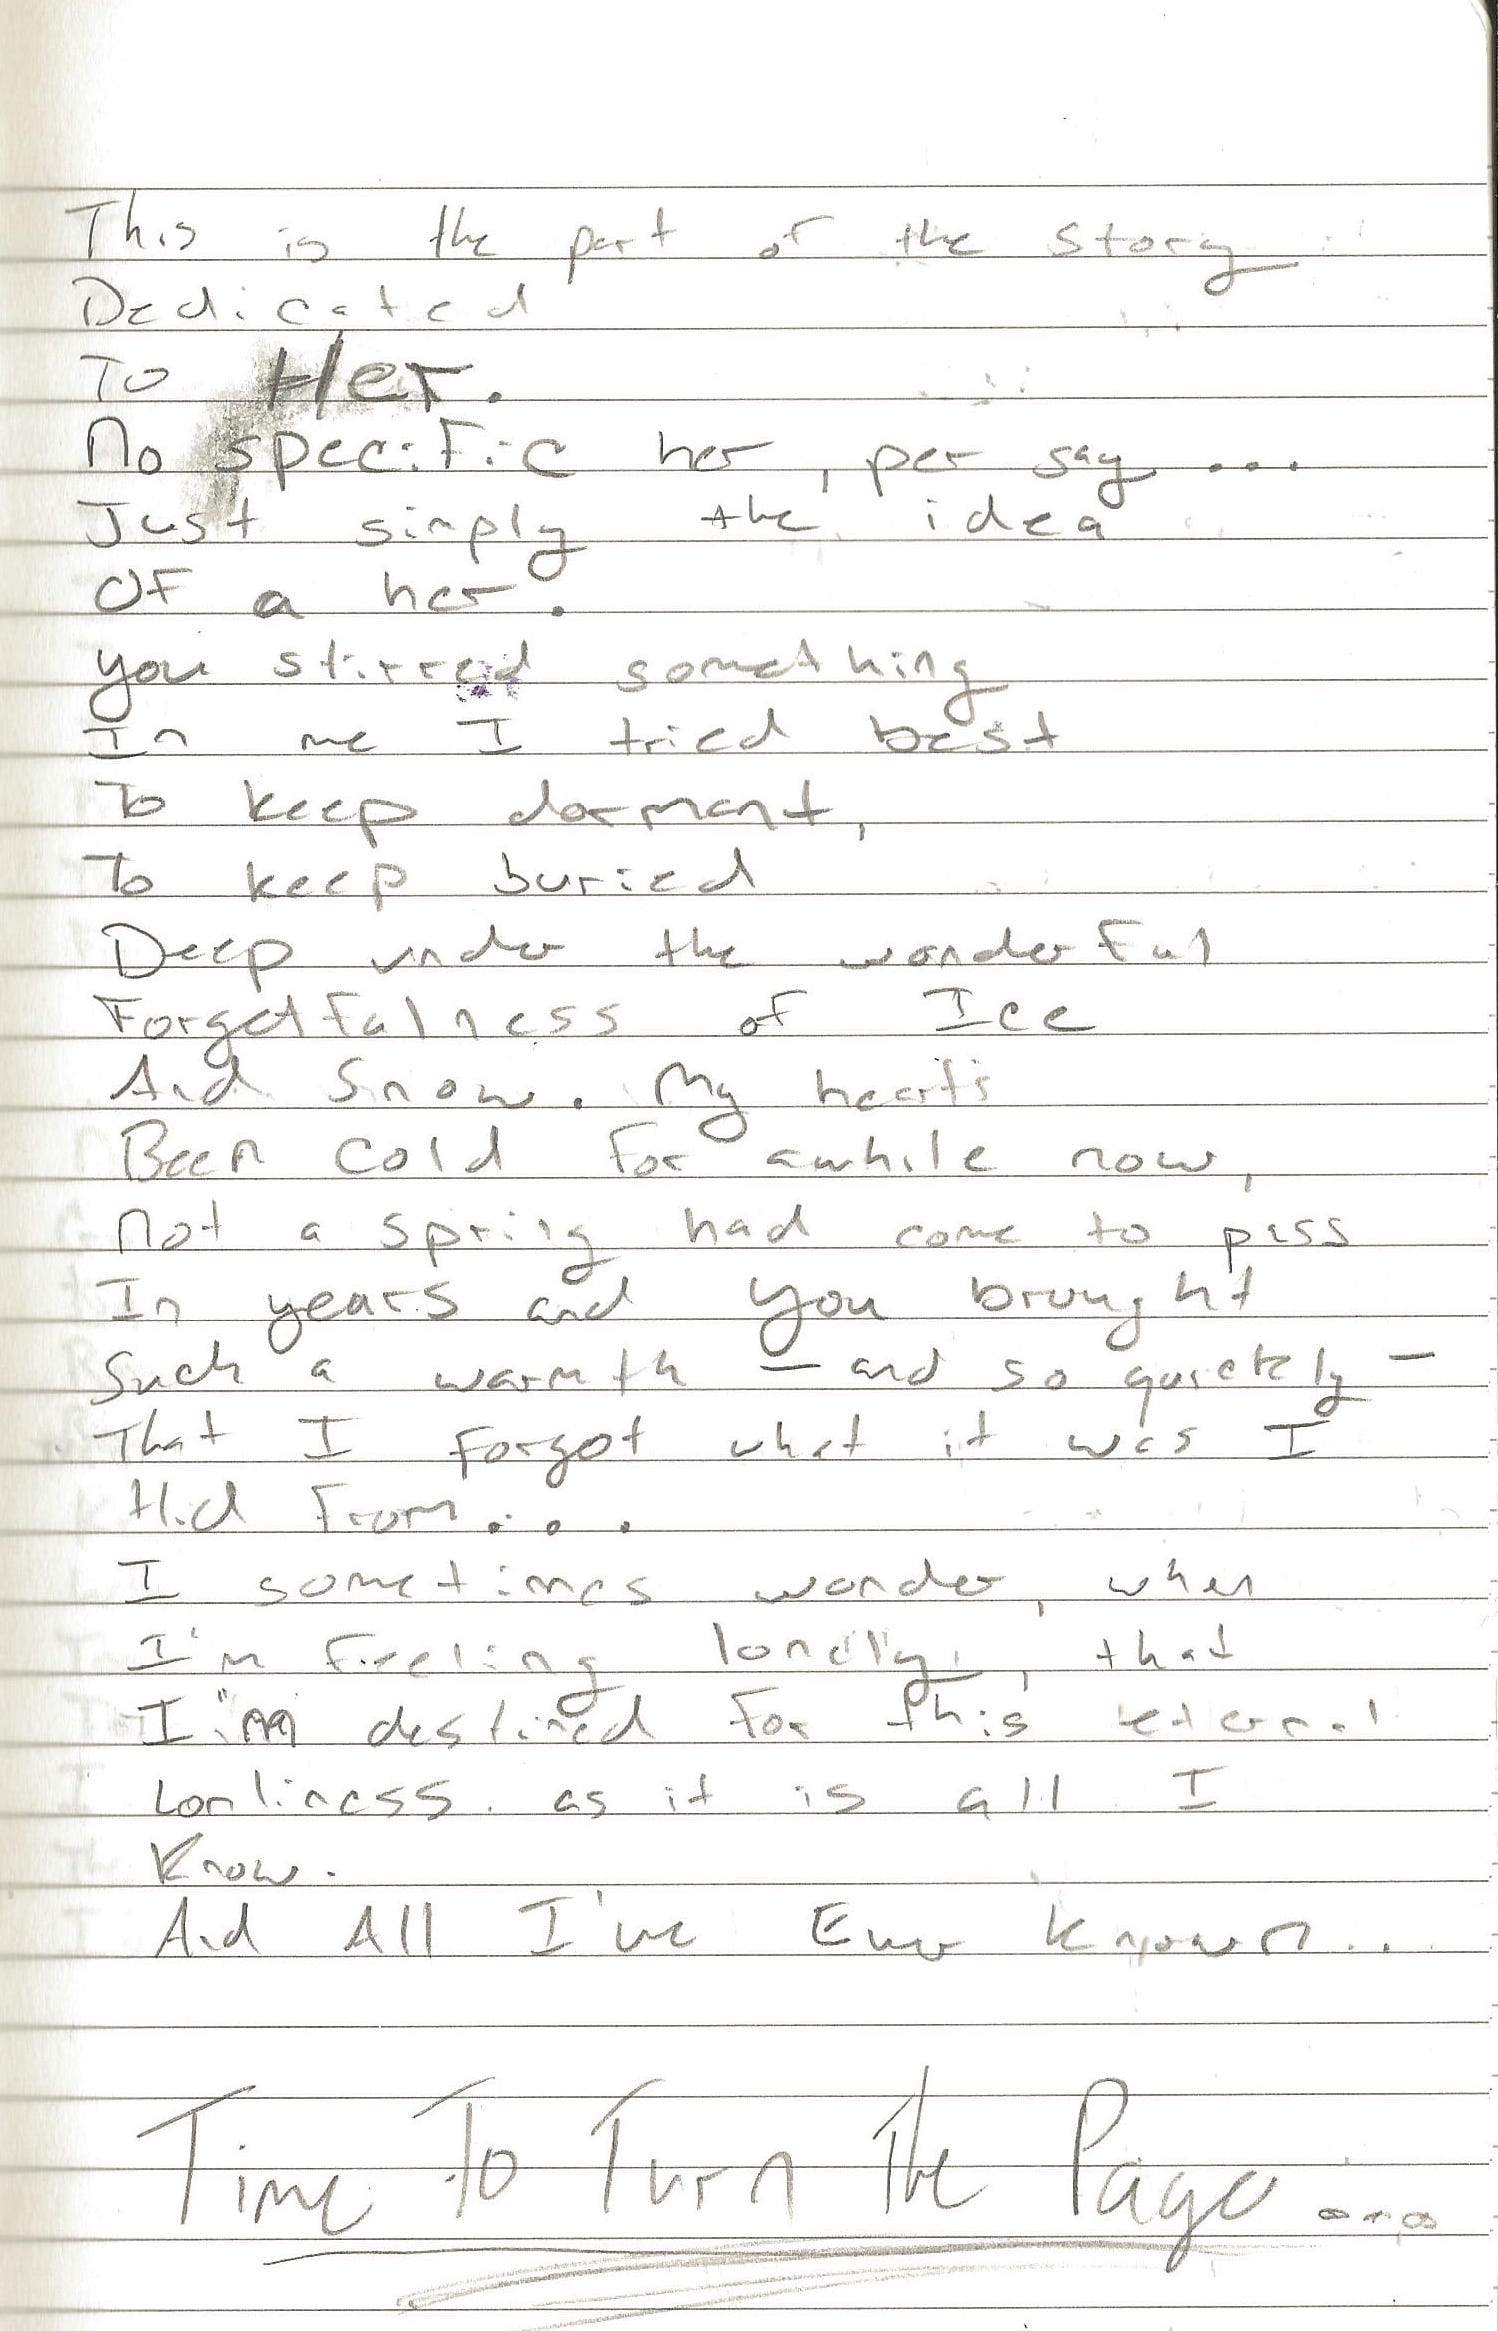 This is the part of the story
Dedicated
To Her.
No specific her, per say...
Just simply the idea
Of a her.
you stirred something
In me I tried best
To keep dormant,
To keep buried
Deep under the wonderful
Forgetfulness of Ice
And Snow. My heart's
Been cold for awhile now,
Not a spring had come to pass
In years and you brought
Such a warmth - and so quickly -
That I forgot what it was I
Hid from...
I sometimes wonder, when
I'm feeling lonely, that
I'm destined for this eternal
Lonliness as it is all I
Know.
And All I've Ever known...
Time To Turn The Page....